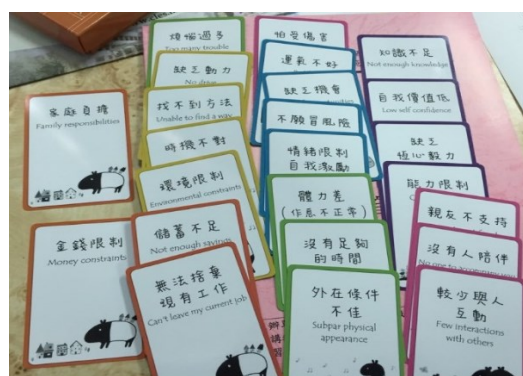 家庭負擔
Family responsibilities
金錢限制
Money constraints
煩惱過多
Too many trouble
缺乏動力
No drive
找不到方法
Unable to find a way
時機不對
環境限制
Environmental constraints
儲蓄不足
Not enough savings
無法捨棄
現有工作
Can't leave my current job
怕受傷害
運氣不好
缺乏機會
不願冒風險
情緒限制
自我激勵
體力差
(作息不正常)
沒有足夠
的時間
外在條件
不佳
Subpar physical
appearance
知識不足
Not enough knowledge
自我價值低
Low self confidence
缺乏
恆心毅力
能力限制
親友不支持
沒有人陪伴
No one to accompany
較少與人
互動
Few interactions
with others